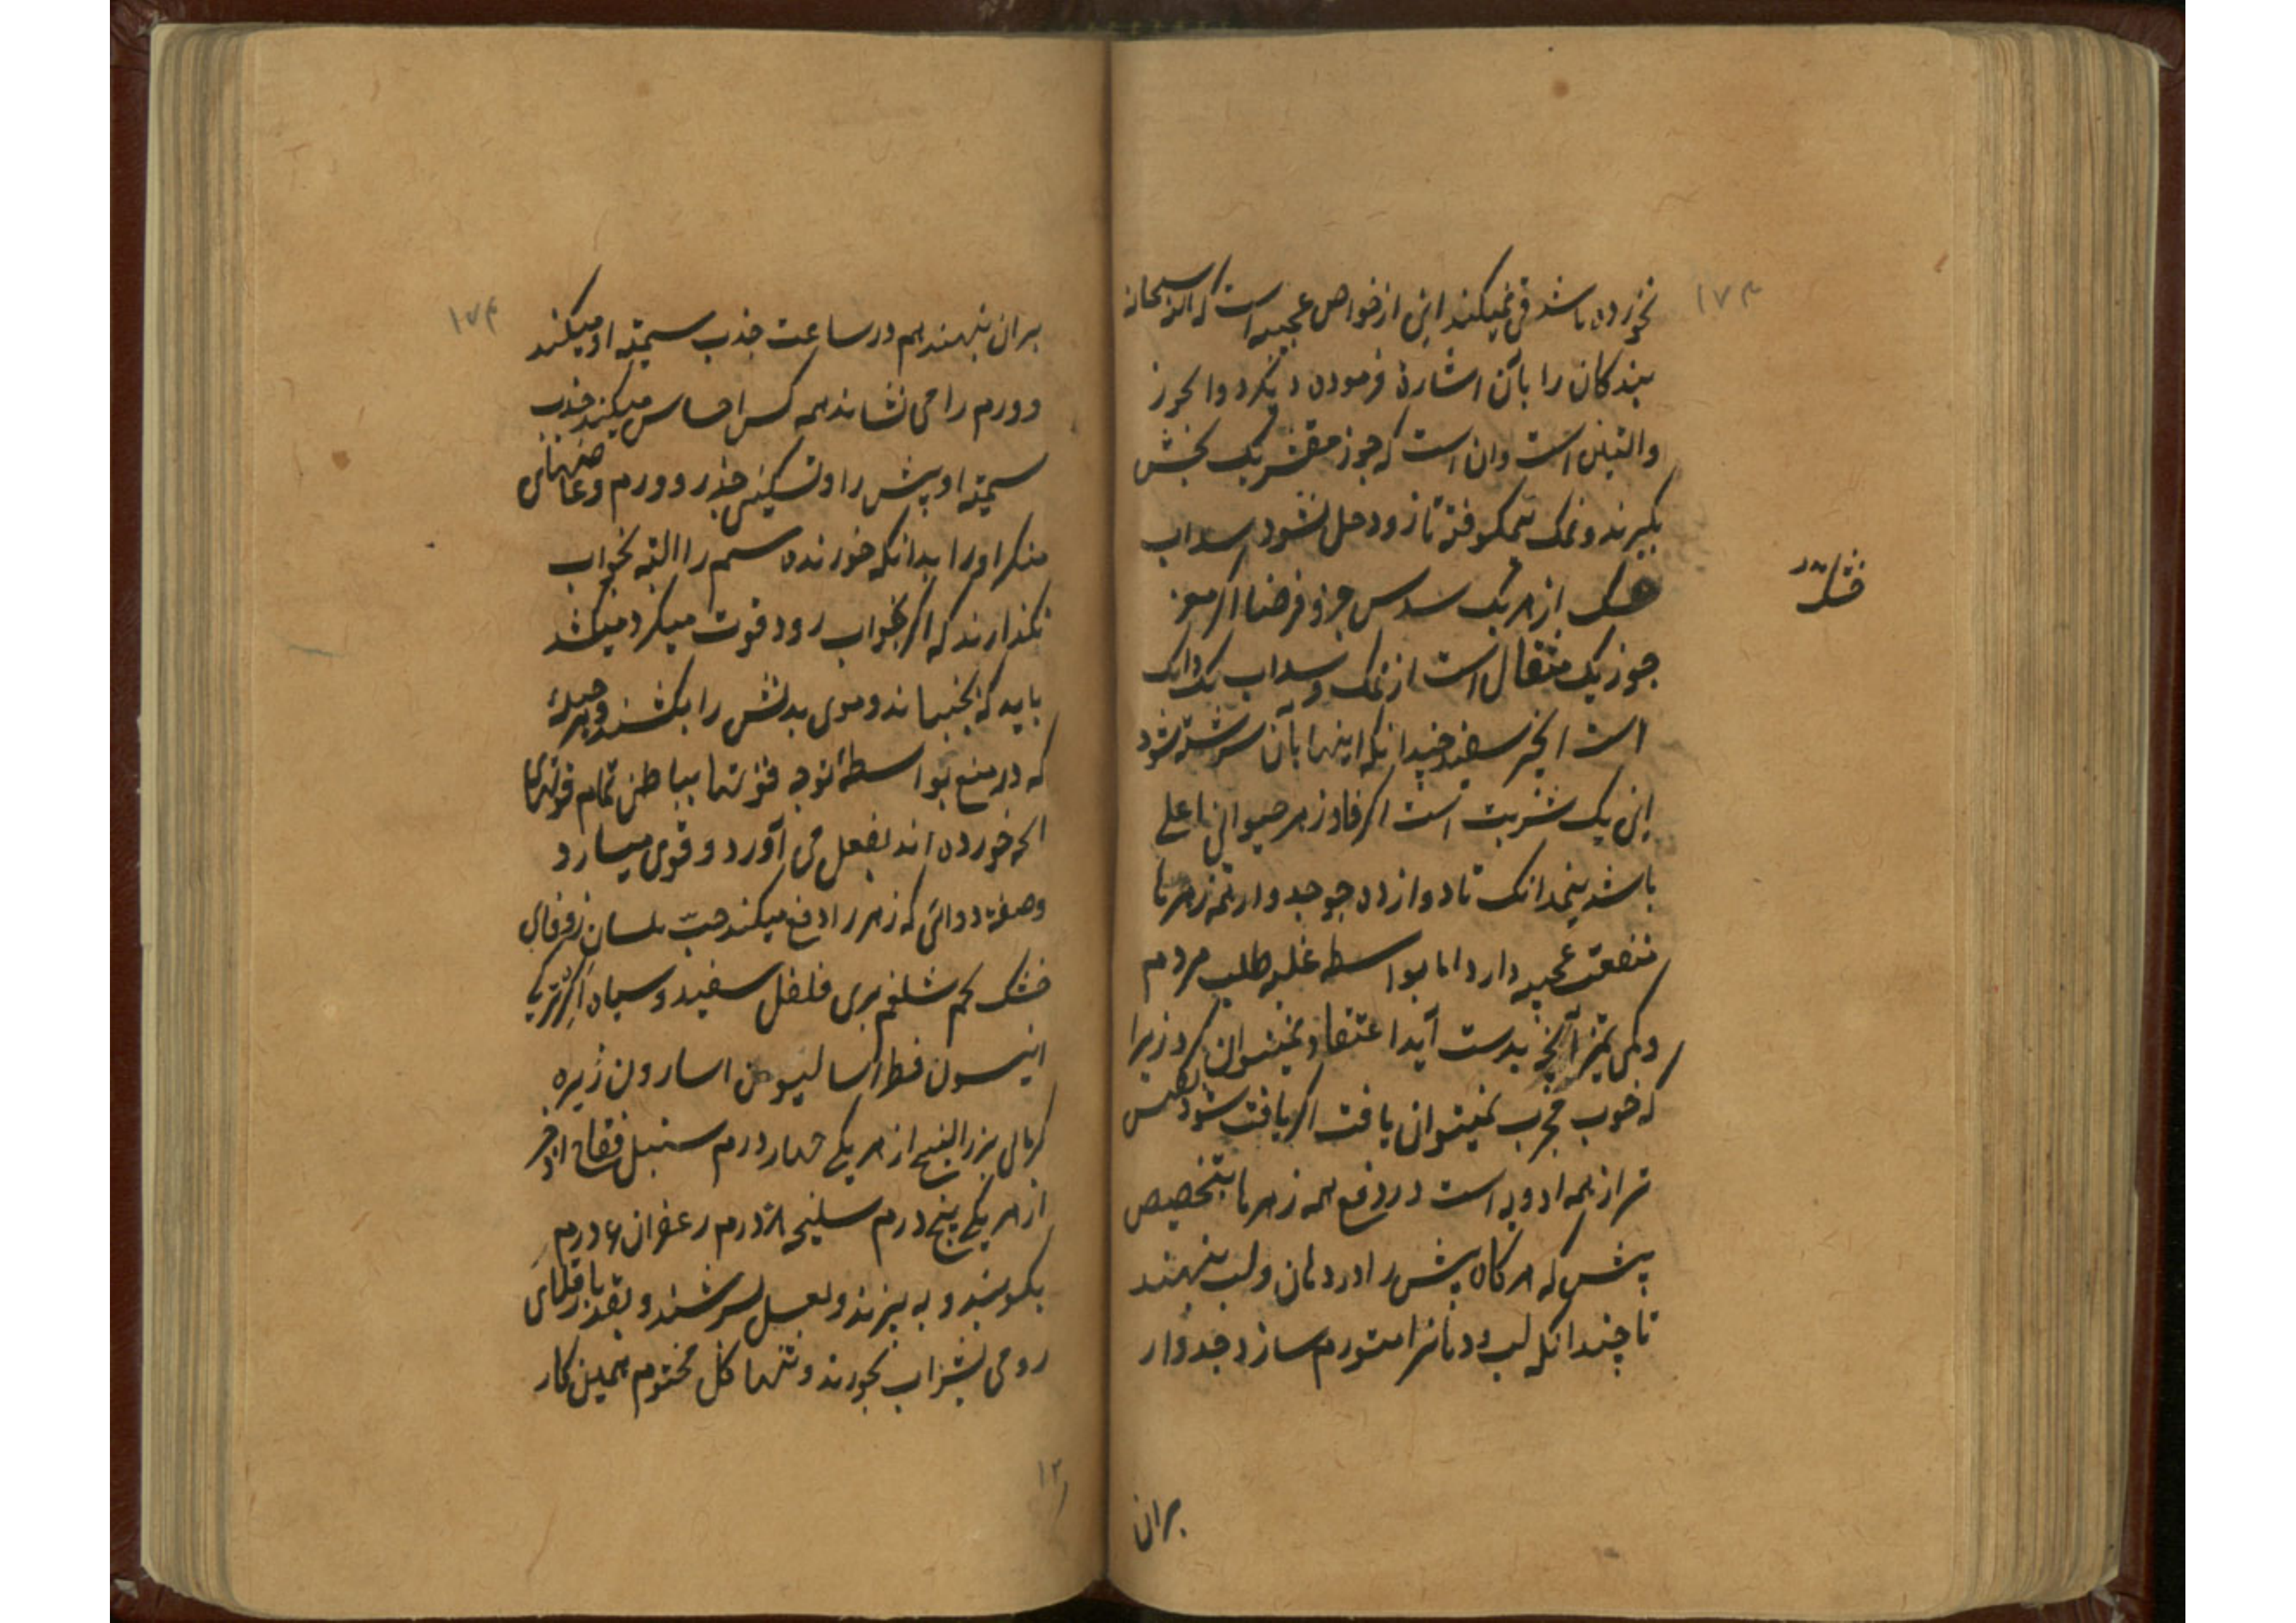 ۱۷۳
نخورده باشد قی نمیکند این از خواص عجیبه است که الله سبحانه
بندکان را بآن اشارة فرموده دیکر دوا الجوز
والتین است وان است که جوز مقشر یک بخش
بکیرند و نمک نیمکوفته تا زود حل نشود سداب
خشک از هر یک سدس جزو فرضا اکر مغز
جوز یک مثقال است از نمک و سداب یک دانک
است انجیر سفید چندانکه اینها بآن سرشته شود
این یک شربت است اکر فادزهر حیوانی اعلی
باشد نیمدانک تا دوازده جو جدوار همه زهرها
منفعت عجیبه دارد اما بواسطه غلبه طلب مردم
وکمی تمیز آنچه بدست آید اعتقاد نمیتوان کرد زیرا
که خوب مجرب نمیتوان یافت اکر یافت شود نفیس
تر از همه ادویه است در دفع همه زهرها بتخصیص
پیش که هرکاه پیش را در دهان ولب بنهند
تا چندانکه لب و دهانرا متورم سازد جدوار
بران
خشک
۱۷۴
بران بنهند هم در ساعت جذب سمیته او میکند
و ورم را می نشاند همه کس احساس میکند جذب
سمیته او پیش را وتسکین خدر و ورم و
منکر او را بدانکه خورنده سم را البته بخواب
نکذارند که اکر بخواب رود قوت میکرد میکشد
باید که بجنبانند و موی بدنش را بکشند و بهر حیله
که در منع بواسطهٔ توجه قوتها بباطن تمام قوتهای
انچه خورده اند بفعل می آورد و قوی میسازد
وصفة دوائی که زهر را دفع میکند حبّ بلسان
خشک تخم شلغم بری فلفل سفید و سیاه
انیسون فطراسالیون اسارون زیره
کرمانی بزر البنج از هر یکی چهار درم سنبل فقاح اذخر
از هر یکی پنج درم سلیخه ۸ درم زعفران ۶ درم
بکوبند و به بیزند و بعسل بسرشند و بقدر باقلای
رومی بشراب بخورند و تنها کل مختوم همین کار
۱۲